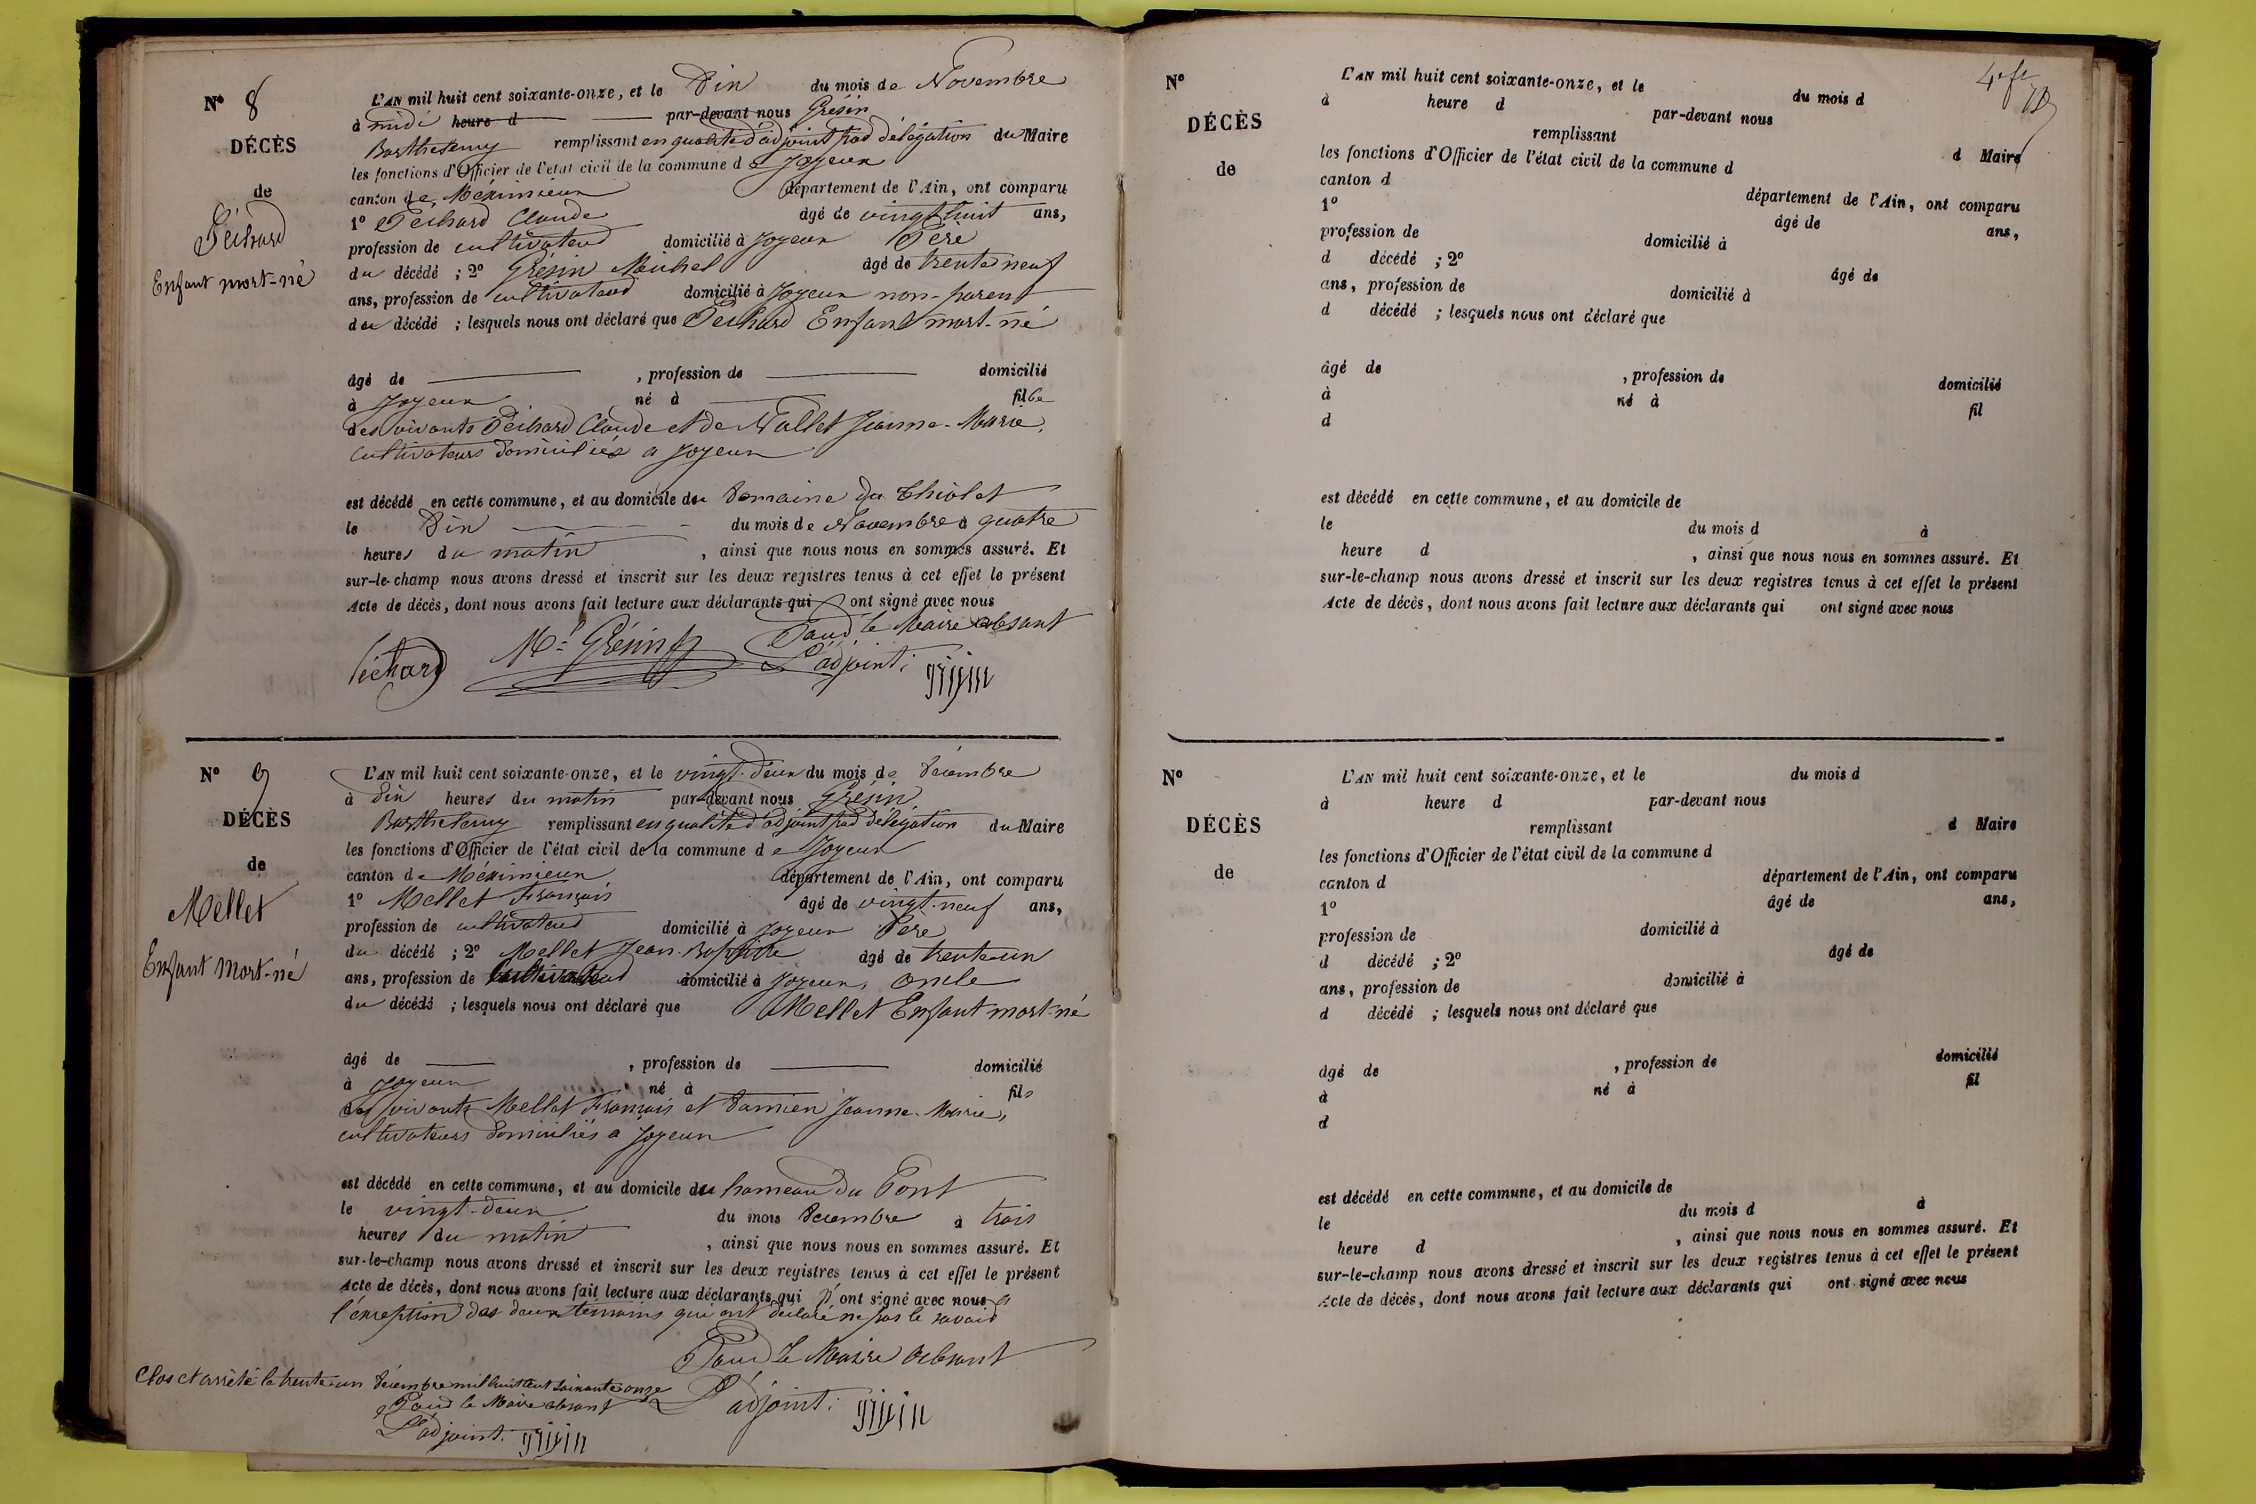 N° 8
DÉCÈS
de
Péchard
Enfant mort-né
L'AN mil huit cent soixante-onze, et le Dix du mois de Novembre
à midi heure d par-devant nous Grésin
Barthelemy remplissant en qualité d'adjoint par délégation du Maire
les fonctions d'Officier de l'état civil de la commune de Joyeux
canton de Meximieux département de l'Ain, ont comparu
1° Péchard Claude âgé de vingt huit ans,
profession de cultivateur domicilié à Joyeux Père
du décédé ; 2° Grésin Michel âgé de trente neuf
ans, profession de cultivateur domicilié à Joyeux non-parent
du décédé ; lesquels nous ont déclaré que Péchard Enfant mort-né
âgé de , profession de domicilié
à Joyeux né à fil de
des vivants Péchard Claude et de Nallet Jeanne-Marie,
cultivateurs domiciliés a Joyeux
est décédé en cette commune, et au domicile du Domaine du Thiolet
le Dix du mois de Novembre à quatre
heures du matin , ainsi que nous nous en sommes assuré. Et
sur-le-champ nous avons dressé et inscrit sur les deux registres tenus à cet effet le présent
Acte de décès, dont nous avons fait lecture aux déclarants qui ont signé avec nous
Pour le Maire absant
Péchard Mel Grésin L'adjoint : grisin
N° 9
DÉCÈS
de
Mellet
Enfant mort-né
L'AN mil huit cent soixante-onze, et le vingt-deux du mois de Décembre
à Dix heures du matin par-devant nous Grésin
Barthelemy remplissant en qualité d'adjoint par délégation du Maire
les fonctions d'Officier de l'état civil de la commune de Joyeux
canton de Méximieux département de l'Ain, ont comparu
1° Mellet François âgé de vingt-neuf ans,
profession de cultivateur domicilié à Joyeux Père
du décédé ; 2° Mellet Jean-Baptiste âgé de trente-un
ans, profession de cultivateur domicilié à Joyeux, oncle
du décédé ; lesquels nous ont déclaré que Mellet Enfant mort-né
âgé de , profession de domicilié
à Joyeux né à fils
des vivants Mellet François et Damien Jeanne-Marie,
cultivateurs domiciliés a Joyeux
est décédé en cette commune, et au domicile du hameau du Pont
le vingt-deux du mois Décembre à trois
heures du matin , ainsi que nous nous en sommes assuré. Et
sur-le-champ nous avons dressé et inscrit sur les deux registres tenus à cet effet le présent
Acte de décès, dont nous avons fait lecture aux déclarants qui n'ont signé avec nous a
l'exception des deux témoins qui ont déclaré ne pas le savoir
Pour le Maire absant
L'adjoint : grisin
Clos et arrêté le trente-un Décembre mil huit cent soixante onze
Pour le Maire absant
L'adjoint. grisin
N°
DÉCÈS
de
L'AN mil huit cent soixante-onze, et le du mois d
à heure d par-devant nous
remplissant d Maire
les fonctions d'Officier de l'état civil de la commune d
canton d département de l'Ain, ont comparu
1° âgé de ans,
profession de domicilié à
d décédé ; 2° âgé de
ans, profession de domicilié à
d décédé ; lesquels nous ont déclaré que
âgé de , profession de domicilié
à né à fil
d
est décédé en cette commune, et au domicile de
le du mois d à
heure d , ainsi que nous nous en sommes assuré. Et
sur-le-champ nous avons dressé et inscrit sur les deux registres tenus à cet effet le présent
Acte de décès, dont nous avons fait lecture aux déclarants qui ont signé avec nous
N°
DÉCÈS
de
L'AN mil huit cent soixante-onze, et le du mois d
à heure d par-devant nous
remplissant d Maire
les fonctions d'Officier de l'état civil de la commune d
canton d département de l'Ain, ont comparu
1° âgé de ans,
profession de domicilié à
d décédé ; 2° âgé de
ans, profession de domicilié à
d décédé ; lesquels nous ont déclaré que
âgé de , profession de domicilié
à né à fil
d
est décédé en cette commune, et au domicile de
le du mois d à
heure d , ainsi que nous nous en sommes assuré. Et
sur-le-champ nous avons dressé et inscrit sur les deux registres tenus à cet effet le présent
Acte de décès, dont nous avons fait lecture aux déclarants qui ont signé avec nous